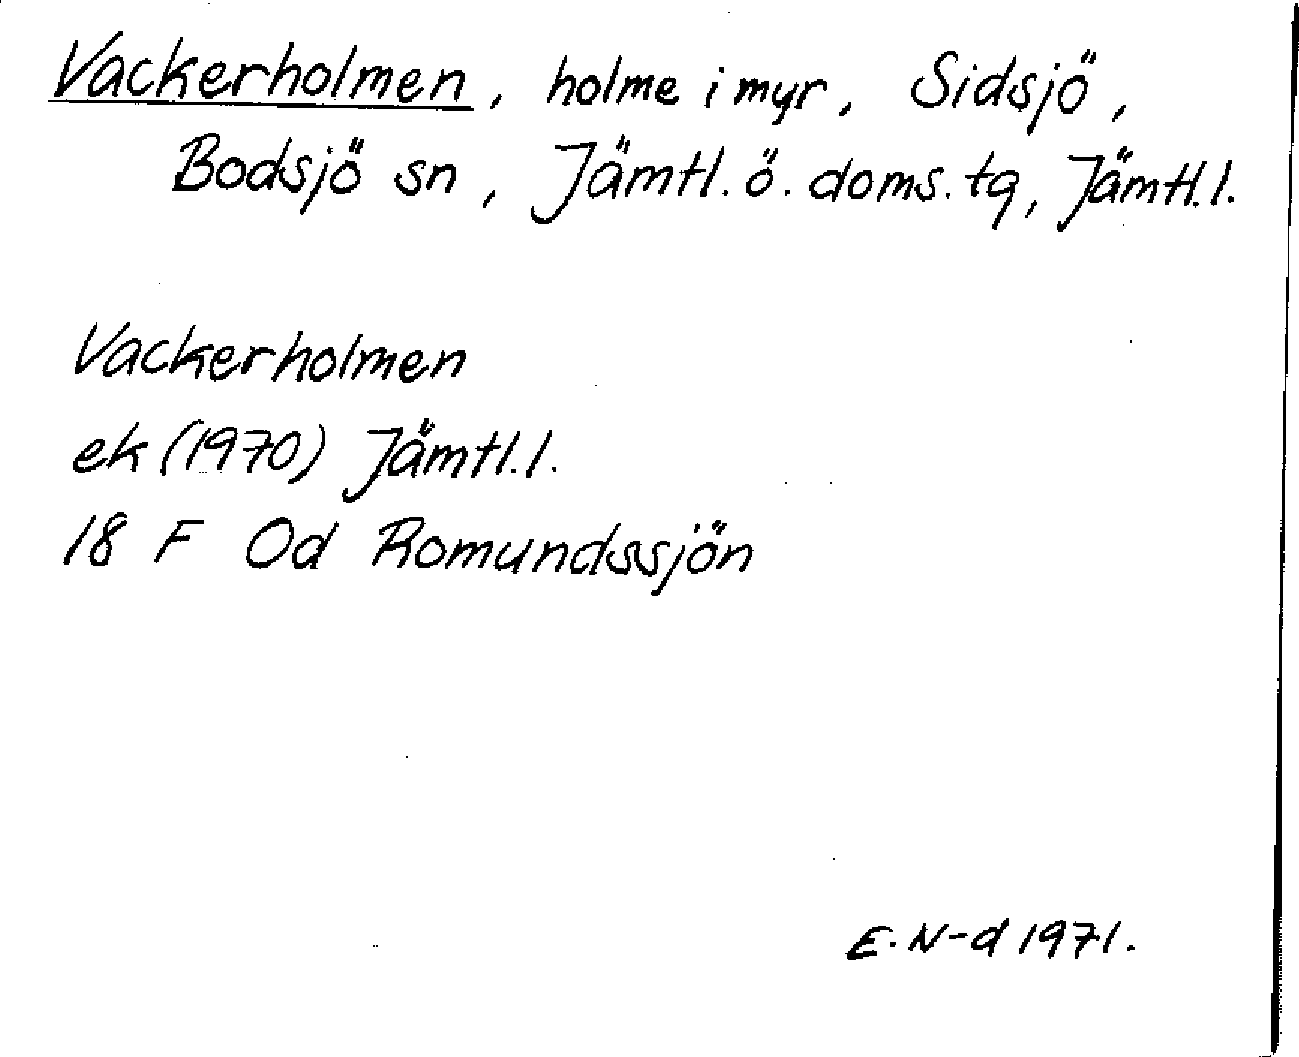 Vackerholmen, holme i myr, Sidsjö,
Bodsjö sn, Jämtl. ö. doms. tg, Jämtl. l.
Vackerholmen
ek (1970) Jämtl. l.
18 F Od Romundssjön
E. N-d 1971.